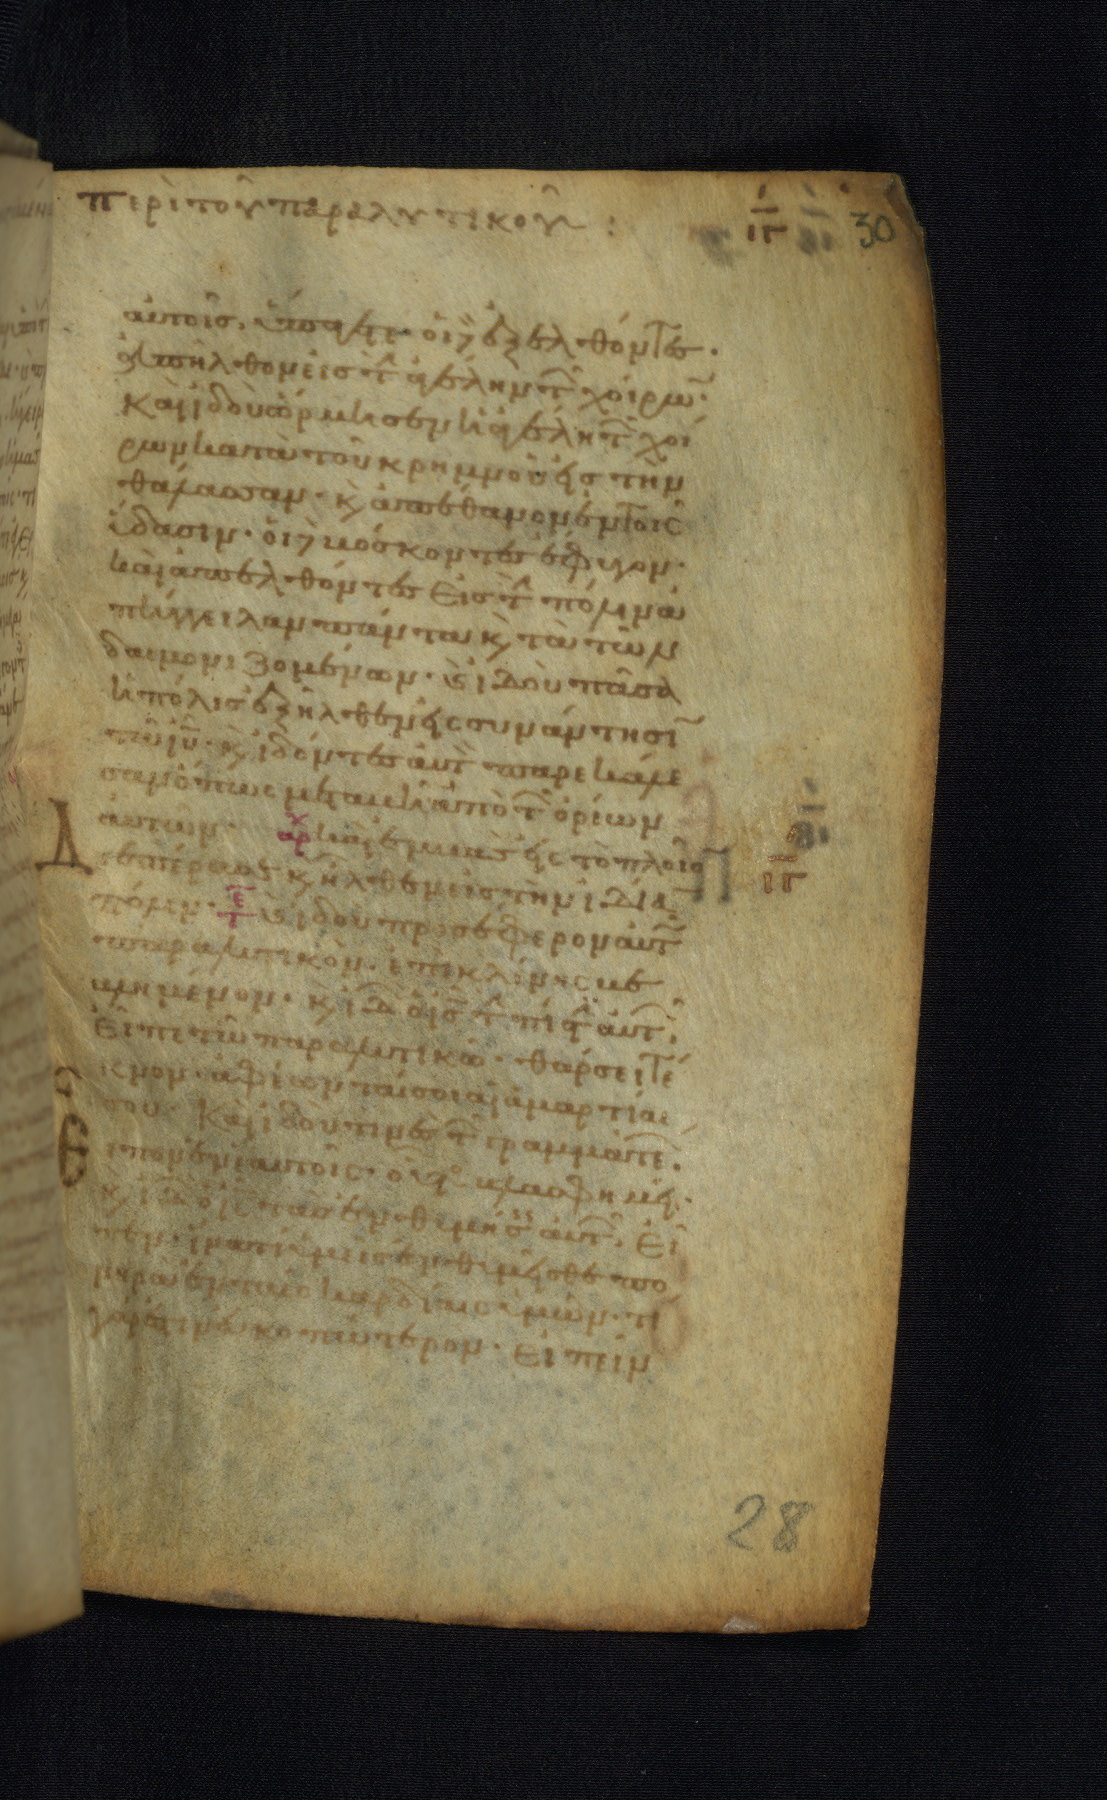 περὶ τοῦ παραλυτικοῦ :
ιγ
30
αὐτοῖς. ὑπάγετε. οἱ δὲ ἐξελθόντες.
ἀπῆλθον εἰς τ ἀγέλην τ χοίρων.
Καὶ ἰδοὺ ὥρμησεν ἡ ἀγέλη τ χοί
ρων κατὰ τοῦ κρημνοῦ εἰς τὴν
θάλασσαν. κ ἀπέθανον ἐν τοῖς
ὕδασιν. οἱ δὲ βόσκοντες ἔφυγον.
καὶ ἀπελθόντες εἰς τ πόλιν ἀ
πήγγειλαν πάντα κ τὰ τῶν
δαιμονιζομένων. κ ἰδοὺ πᾶσα
ἡ πόλις ἐξῆλθεν εἰς συνάντησιν
τῶ ιυ. κ ἰδόντες αὐτ παρεκάλε
σαν ὅπως μεταβῆ ἀπὸ τ ὁρίων
αὐτῶν. αρχ καὶ ἐμβὰς εἰς τὸ πλοῖο
Δ
διεπέρασε κ ἦλθεν εἰς τὴν ἰδίαν
ιγ
πόλιν. κ ἰδοὺ προσέφερον αὐτ
παραλυτικὸν. ἐπὶ κλίνης βε
βλημένον. κ ἰδ ὁ ις τ πίστ αὐτ.
εἶπε τῶ παραλυτικῶ. θάρσει τέ
κνον. ἀφέωνταί σοι αἱ ἁμαρτίαι
σου. Καὶ ἰδού τινες τ γραμματέ.
εἶπον ἐν ἑαυτοῖς. οὗτο βλασφημεῖ.
κ ἰδ ὁ ις τὰς ἐνθυμήσ αὐτ. εἶ
πεν. ἱνατί ὑμεῖς ἐνθυμεῖσθε πο
νηρὰ ἐν ταῖς καρδίαις ὑμῶν. τί
γάρ ἐστιν εὐκοπώτερον. εἰπεῖν
28